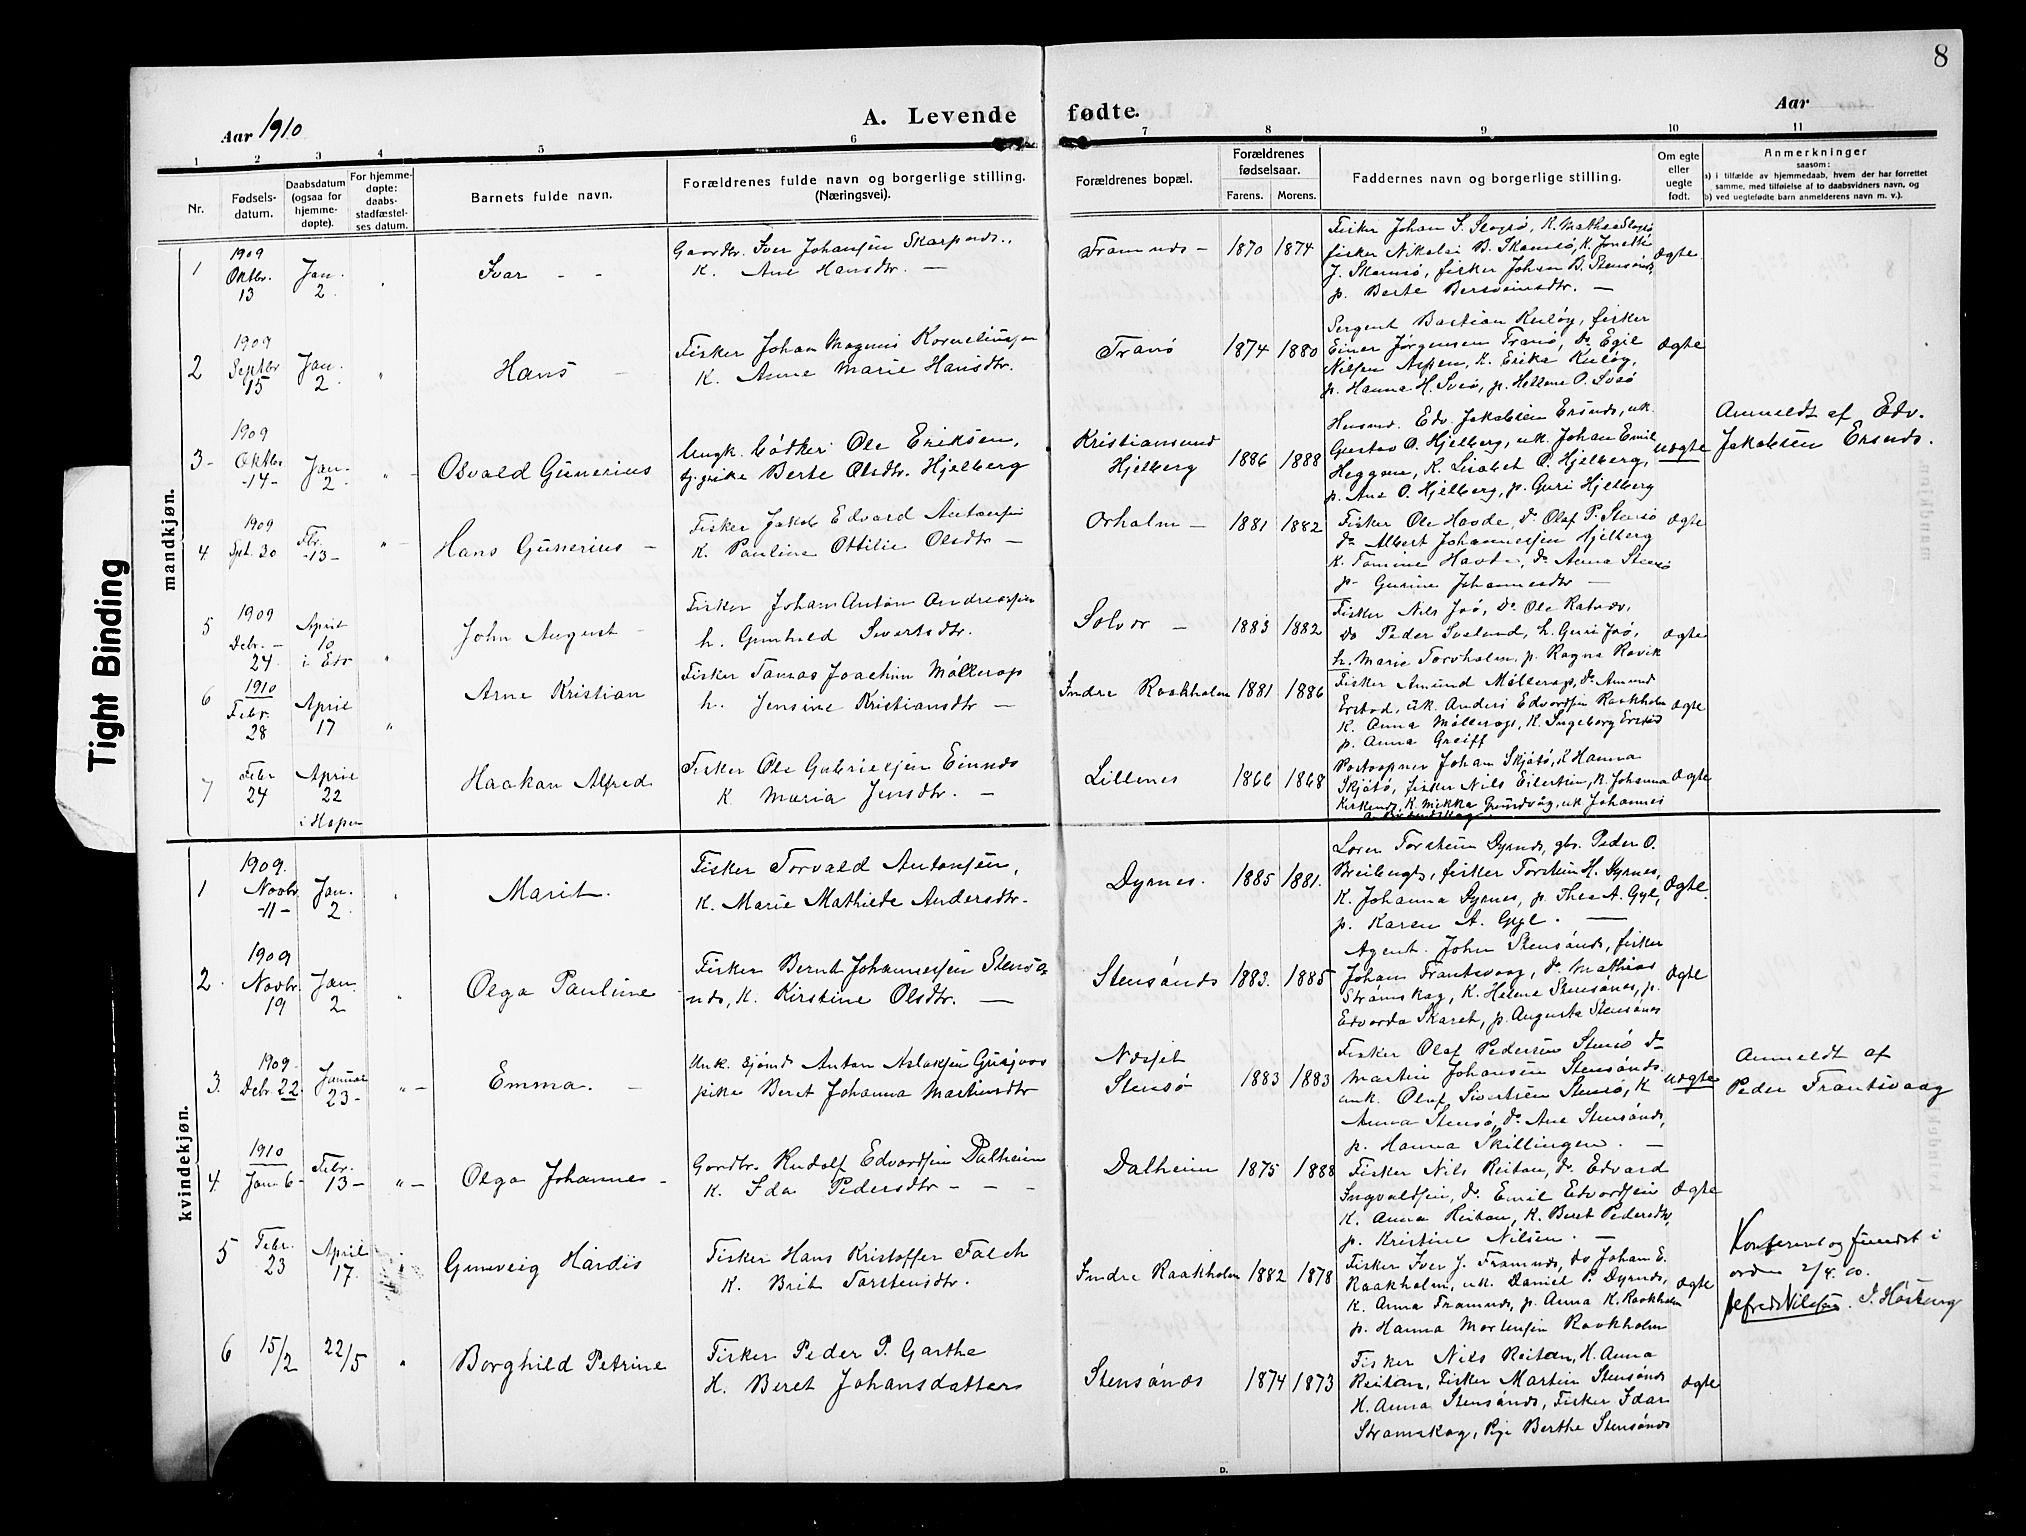 8
Aar 1910
A. Levende fødte.
Aar
1 2 3 4 5 6 7 8 9 10 11
Nr.
Fødsels-
datum.
Daabsdatum
(ogsaa for
hjemme-
døpte).
For hjemme-
døpte:
daabs-
stadfæstel-
ses datum.
Barnets fulde navn.
Forældrenes fulde navn og borgerlige stilling.
(Næringsvei).
Forældrenes bopæl.
Forældrenes
fødselsaar.
Farens. Morens.
Faddernes navn og borgerlige stilling.
Om egte
eller
uegte
født.
Anmerkninger
saasom:
a) i tilfælde av hjemmedaab, hvem der har forrettet
samme, med tilføielse af to daabsvidners navn, og
b) ved uegtefødte barn anmelderens navn m. v.).
mandkjøn.
1
1909
Oktbr.
13
Jan.
2.
Ivar - -
Gaardbr. Iver Johansen Skarpnes.,
K. Ane Hansdtr. —
Framnds -
1870 1874
Fisker Johan S.
fisker Nikolai B. Skamsö, K.
J. Skamsö, fisker Johan B. Stensönds
p. Berte
Ægte
2
1909
Septbr
15
Jan.
2
Hans -
Fisker Johan Magnus Korneliussen
K. Anne Marie Hansdtr.
Tranö
1874 1880
Sergent Bastian Kulöy, fisker
Einer Jørgensen Tranö, Do Egil
Nilsen Aspen, K. Erika Kulöy,
p. Hanna H. Svesö, p. Hellene O. Svesö
Ægte
3-
1909
Oktbr
-14-
Jan.
2
Osvald Gunerius
Ungk. Bödker Ole Eriksen,
pike Berte Olsdtr. Hjelberg
Kristiansund
Hjelberg
1886 1888
Husmd. Edv. Jakobsen Ersnds, uk.
Gustav O. Hjelberg, uk. Johan Emil
Heggem, K. Lisabet O. Hjelberg,
p. Ane O. Hjelberg, p. Guri Hjelberg
uægte
Anmeldt af Edv.
Jakobsen Ersnds.
4
1909
Spt. 30
Fbr.
-13-
Hans Gunerius -
Fisker Jakob Edvard Antonsen
K. Pauline Ottilie Olsdtr -
Orholm -
1881 1882
Fisker Ole Havde, Do Olaf P. Stensö
Do Albert Johannessen Hjelberg
K. Tomine Do Anna Stensö
p- Gurine Johannesdtr -
Ægte
5
1909
Debr. -
24.
April
10
i Edö
John August -
Fisker Johan Anton Andreassen
h. Gunhild Sivertsdtr.
Solvor -
1883 1882
Fisker Nils Joö, Do Ole
Do Peder h. Guri Joö,
h. Marie Torvholm, p. Ragna Ravik
Ægte
6
1910
Febr.
28
April
17
Arne Kristian
Fisker Tomas Joachim Möllerop
h. Jensine Kristiansdtr -
Indre Raakholm
1881 1886
Fisker Amund Möllerop, Do Amund
Erstad, uk. Anders Edvardsen Raakholm
K. Anna Möllerop, K. Ingeborg Erstad
p. Anna Greiff
Ægte
7
Febr
24
April
22
i Hopen
Haakan Alfred
Fisker Ole Gabrielsen
K. Maria Jensdtr. -
Lillenes
1866 1868
Postaapner Johan Skjölö, K Hanna
Skjölö, fisker Nils Eilertsen, K. Johanna
K. Mikka Grundvåg, uk Johannes
Ægte
kvindekjøn.
1
1909.
Novbr
-11-
Jan.
2
Marit.
Fisker Torvald Antonsen,
K. Marie Mathilde Andersdtr.
Dyrnes.
1885 1881.
Torstein Dyrnes, gbr. Peder O.
fisker Torstein H. Dyrnes,
K. Johanna Dyrnes, p. Thea A. Gyl,
p. Karen A. Gyl. —
Ægte.
2.
1909
Novbr.
19
Jan.
2
Olga Pauline
Fisker Bernt Johannessen Stensö
nds, K. Kirstine Olsdtr. —
Stensönds
1883. 1885
Agent. John Stensönds, fisker
Johan Frantsvaag, Do Mathias
Strömskag, K. Helene Stensönes, p.
Edvarda Skaret, p. Augusta Stensönes
Ægte
3.
1909.
Debr 22.
Januar
23-
Emma. -
Unk. Sjömd Anton Aslaksen
pike Beret Johanna Martinsdtr
Stensö
1883 1883
Fisker Olaf Pedersen Stensö Do
Martin Johansen Stensönds.
unk. Olaf Sivertsen Stensö, K
Anna Stensö, Do Ane Stensönds,
p. Hanna Skillingen. -
uægte
Anmeldt af
Peder Frantsvaag
4.
1910
Jan 6-
Febr.
13-
Olga Johannes -
Gardbr. Rudolf Edvardsen Dalheim
K. Ida Pedersdtr - - -
Dalheim
1875 1888
Fisker Nils Reitan, Do Edvard
Ingvaldsen, Do Emil Edvardsen
K. Anna Reitan, K. Beret Pedersdtr,
p. Kristine Nilsen. —
Ægte
5
Febr.
23
April
17.
Gunveig Hårdis
Fisker Hans Kristoffer Falch
K. Brit Torstensdtr.
Indre Raakholm
1882 1878
Fisker Iver J. Framnds, do Johan E.
Raakholm, uk. Daniel P. Dyrnds,
K. Anna Framnds, p. Anna K. Raakholm
p. Hanna Mortensen Raakholm
Ægte
Konferert og fundet i
orden 2/4.10.
Alfred Nilsen.
6
15/2
22/5
Borghild Petrine
Fisker Peder P. Garthe
H. Beret Johansdatter
Stensönds
1874 1873
Fisker Nils Reitan, H. Anna
Reitan, Fisker Martin Stensönds
H. Anna Stensönds, Fisker Idar
Strømskag, Pige Berthe Stensönds
Ægte
D.
Tight Binding